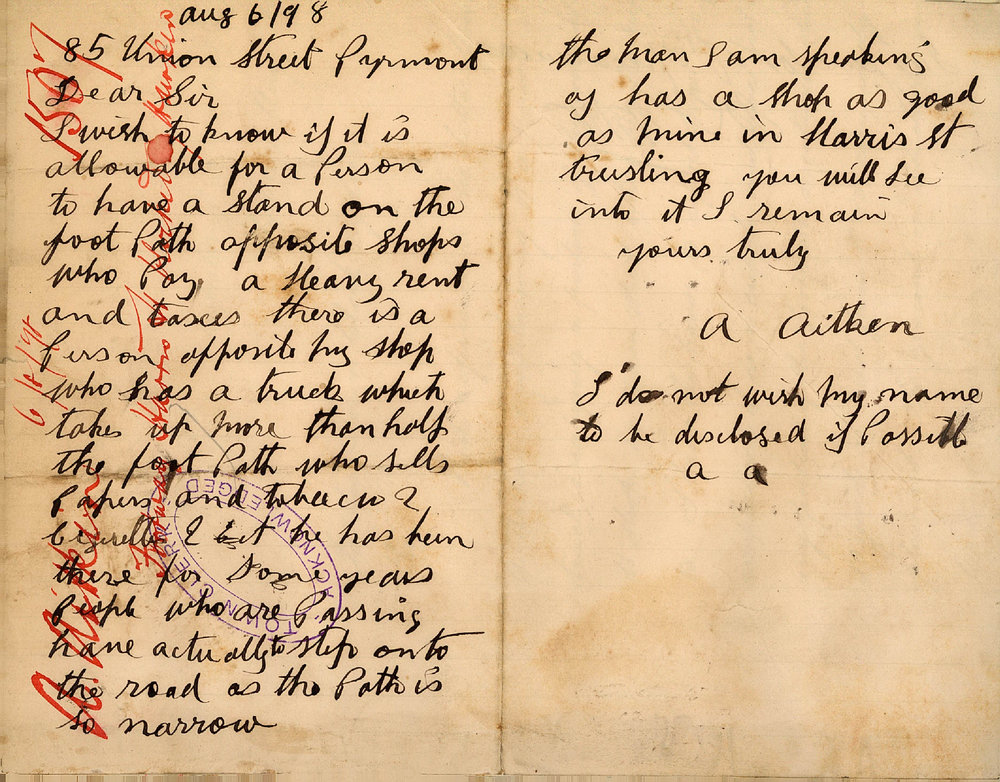 aug 6/98
85 Union Street Pyrmont
Dear Sir
I wish to know if it is
allowable for a Person
to have a stand on the
foot Path opposite shops
who Pay a Heavy rent
and taxes there is a
Person opposite my shop
who has a truck which
takes up more than half
the foot Path who sells
Papers and tobacco &
Cigarettes & Et he has been
there for Some years
People who are Passing
have actually to step onto
the road as the Path is
so narrow
the man I am speaking
of has a shop as good
as mine in Harris St
trusting you will see
into it I remain
yours truly
A Aitken
I do not wish my name
to be disclosed if Possible
a a
A. Aitken
6/8/98
TOWN CLERK
ACKNOWLEDGED